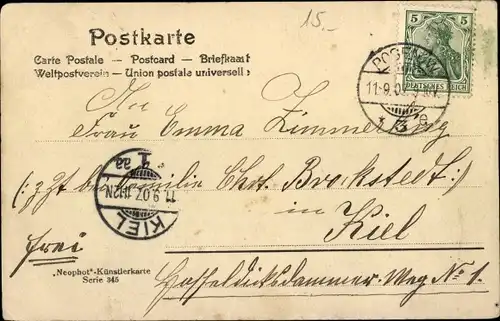 15.-
Postkarte
Carte Postale — Postcard — Briefkaart
Weltpostverein — Union postale universelle
5 5
DEUTSCHES REICH
POSEN
11.9.07
An
Frau Emma Zimmerling
(: zzt bei Familie Chr. Brockstedt :)
in
Kiel
KIEL
11.9.07.11-12N
1
aa
frei
Hasseldieksdammer-Weg No 1.
„Neophot"-Künstlerkarte
Serie 345